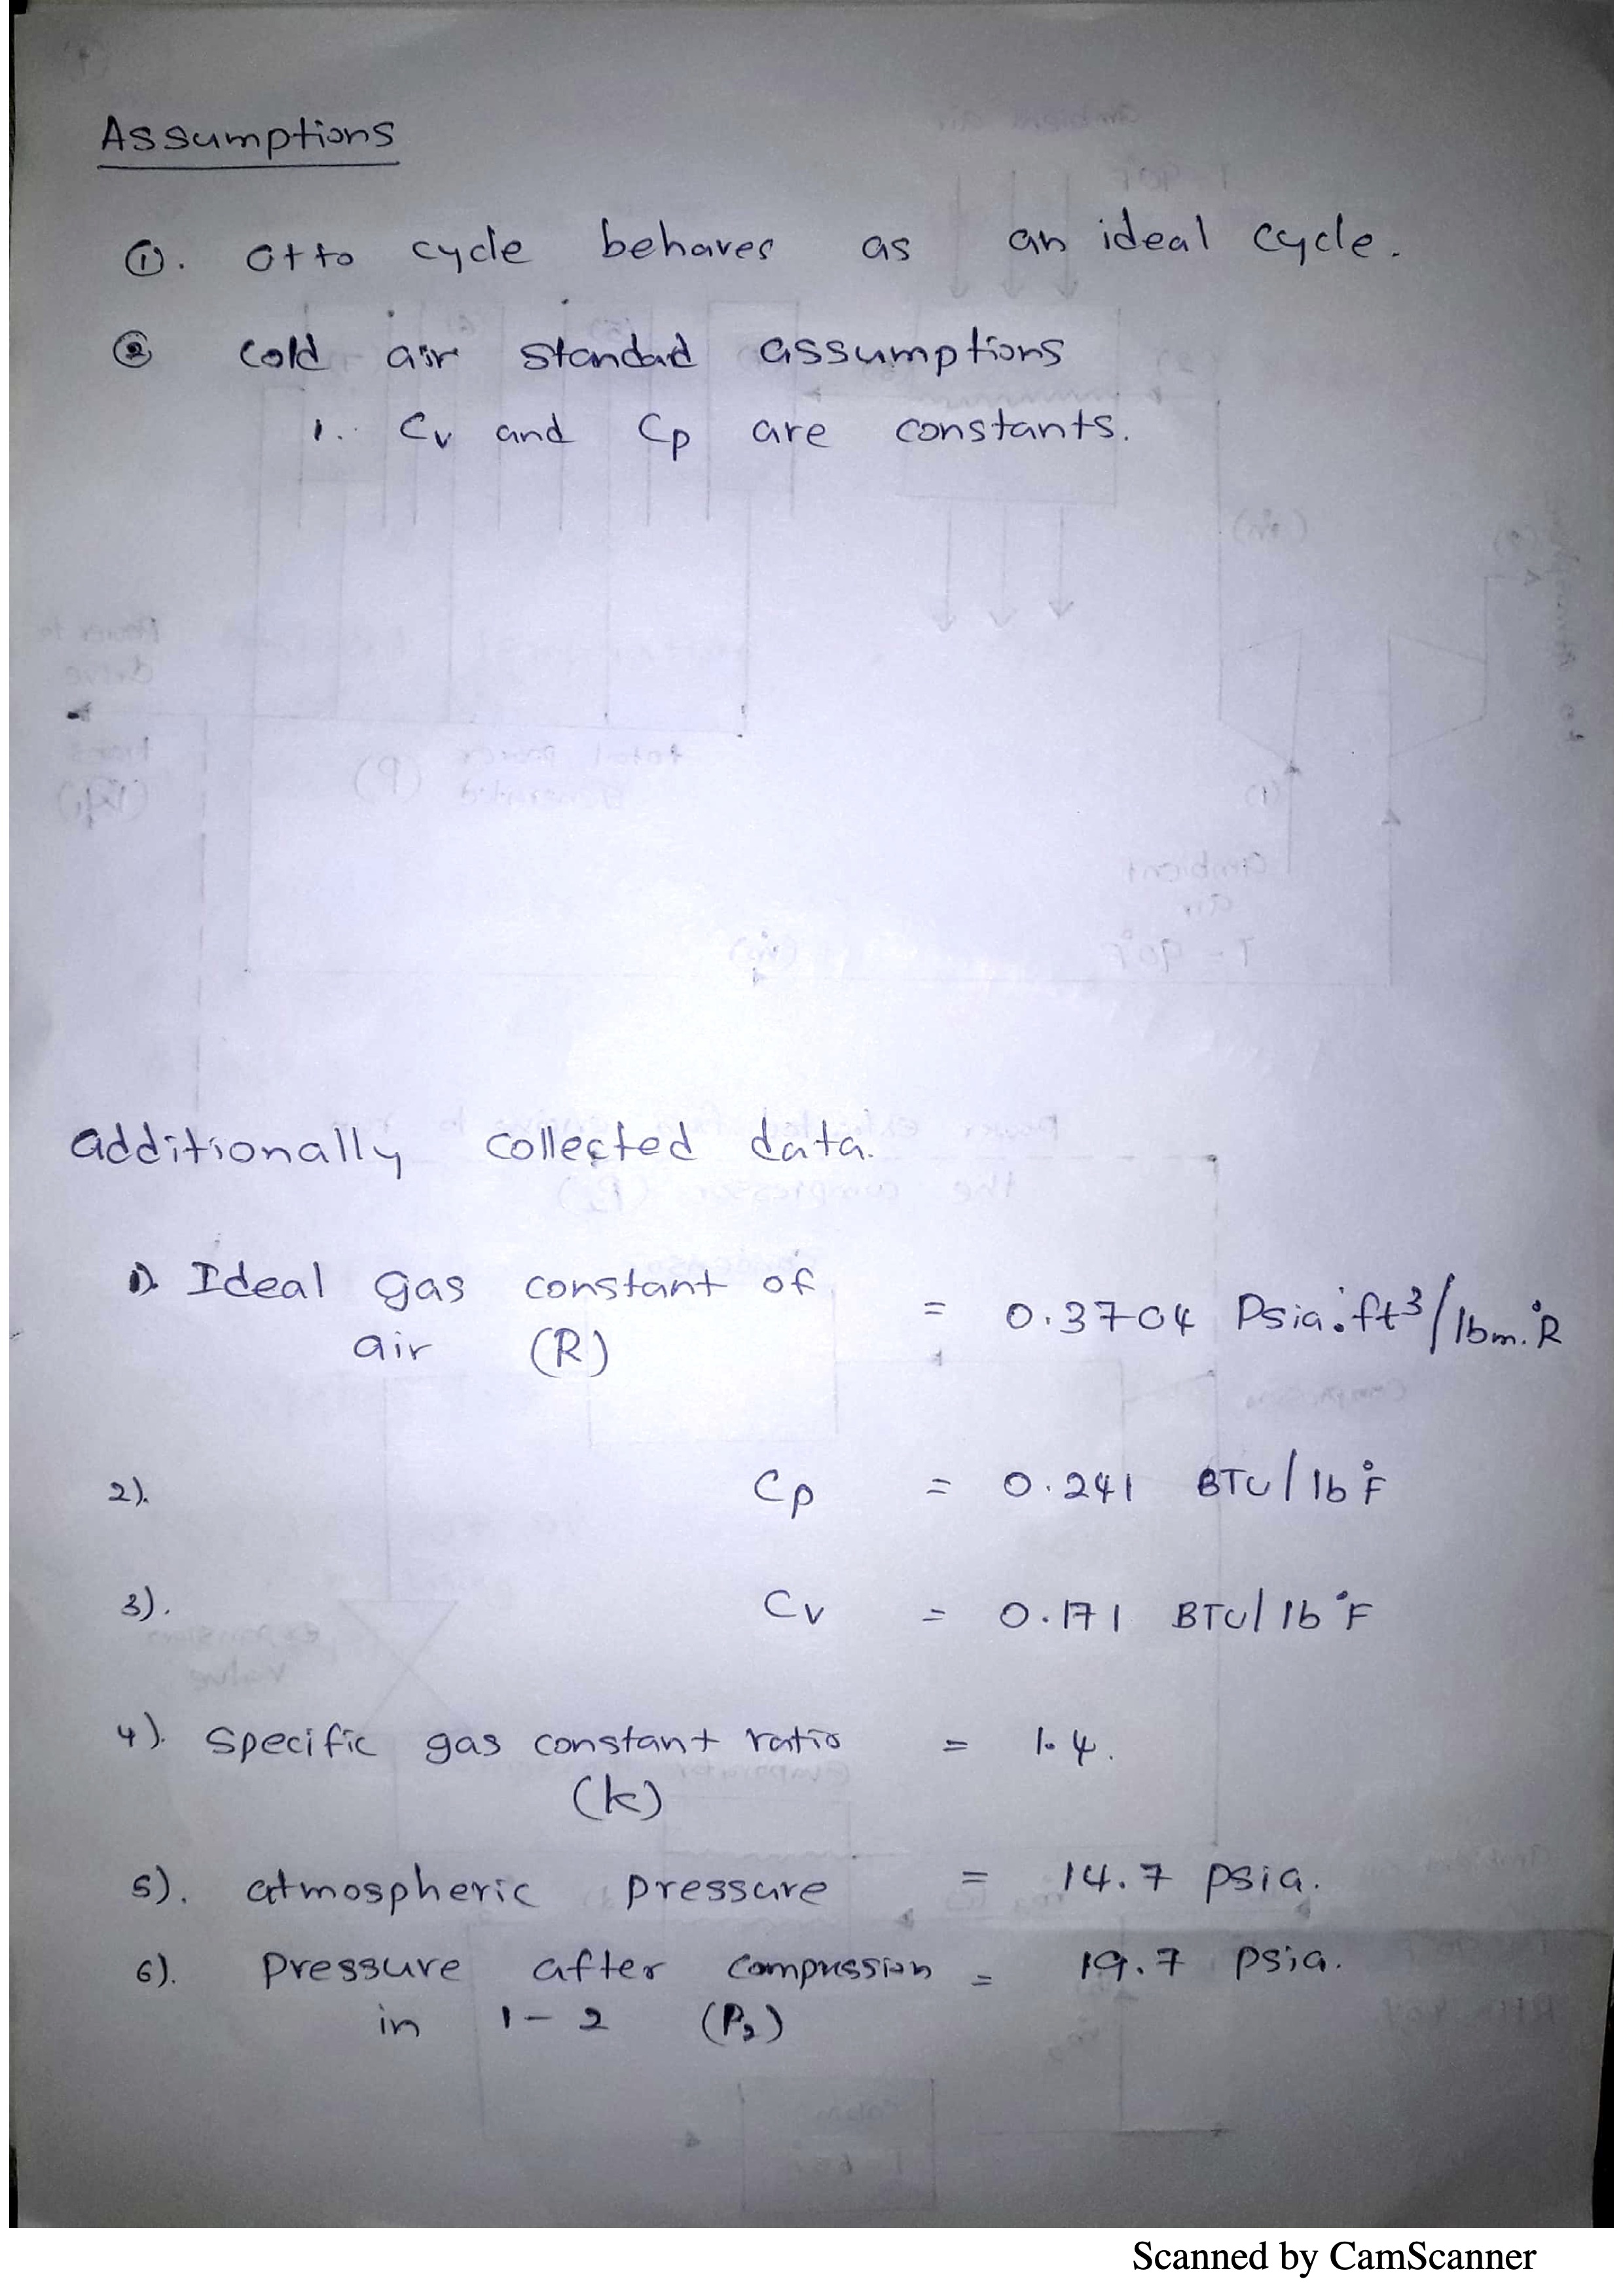 Assumptions
①. Otto cycle behaves as an ideal cycle.
② Cold air standad assumptions
1. Cv and Cp are constants.
additionally collected data.
1). Ideal gas constant of
air (R) = 0.3704 Psia.ft³/lbm.°R
2). Cp = 0.241 BTU/lb°F
3). Cv = 0.171 BTU/lb°F
4). Specific gas constant ratio = 1.4.
(k)
5). atmospheric pressure = 14.7 psia.
6). Pressure after compression = 19.7 psia.
in 1-2 (P₂)
Scanned by CamScanner